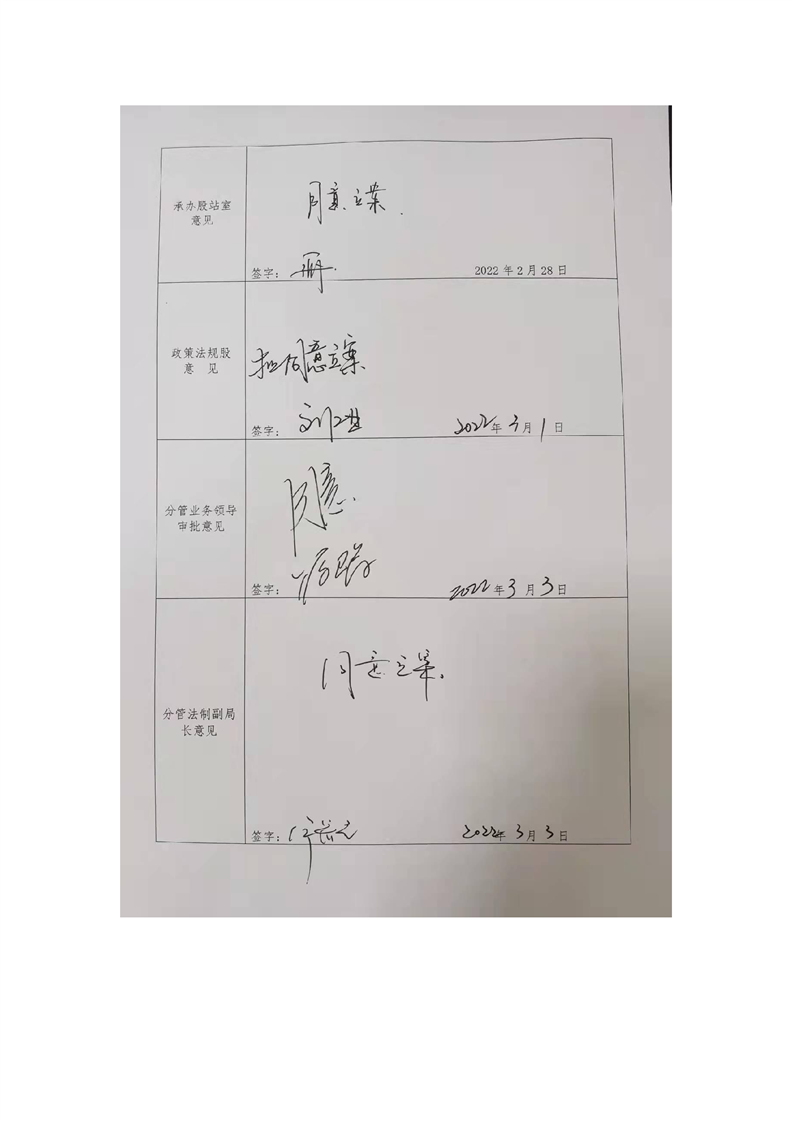 承办股站室
意见
同意立案.
签字：
2022年2月28日
政策法规股
意 见
拟同意立案
签字：刘
2022年3月1日
分管业务领导
审批意见
同意.
签字：
2022年3月3日
分管法制副局
长意见
同意立案.
签字：
2022年3月3日